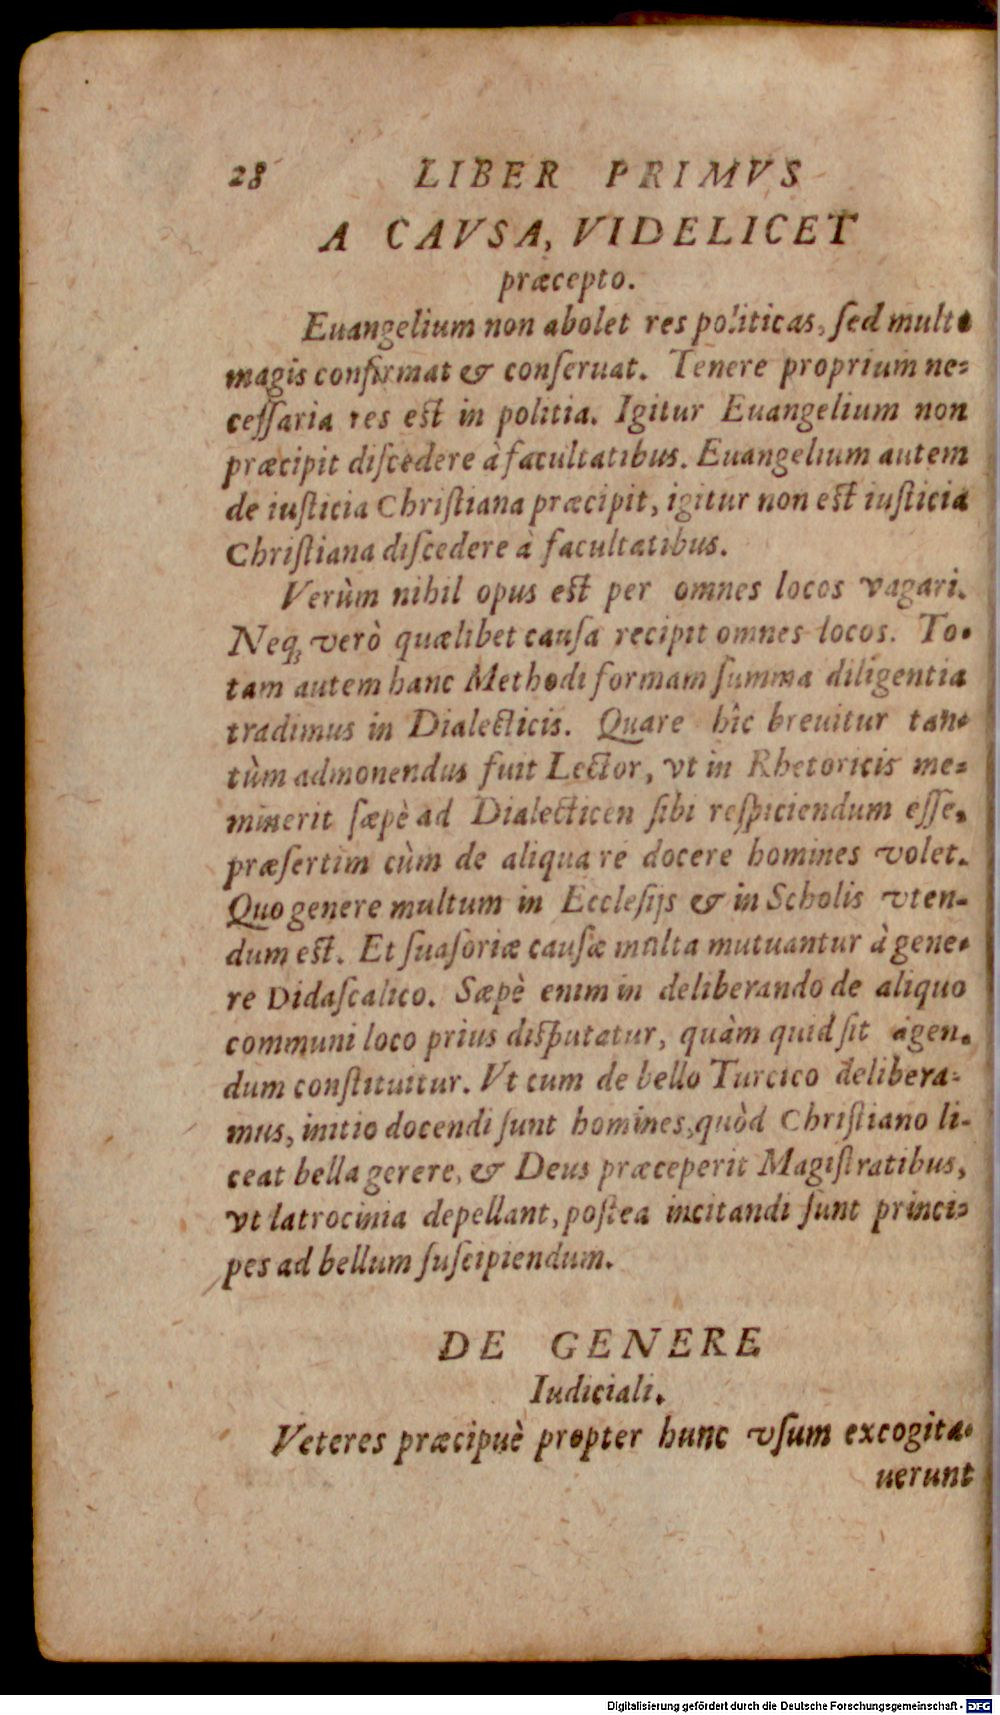 28 LIBER PRIMVS
A CAVSA, VIDELICET
præcepto.
Euangelium non abolet res politicas, ſed multo
magis confirmat & conſeruat. Tenere proprium ne-
ceſſaria res eſt in politia. Igitur Euangelium non
præcipit diſcedere à facultatibus. Euangelium autem
de iuſticia Chriſtiana præcipit, igitur non eſt iuſticia
Chriſtiana diſcedere à facultatibus.
Verùm nihil opus eſt per omnes locos vagari.
Neqꝫ verò quælibet cauſa recipit omnes locos. To-
tam autem hanc Methodi formam ſumma diligentia
tradimus in Dialecticis. Quare hîc breuitur tan-
tùm admonendus fuit Lector, vt in Rhetoricis me-
minerit ſæpè ad Dialecticen ſibi reſpiciendum eſſe,
præſertim cùm de aliqua re docere homines volet.
Quo genere multum in Eccleſijs & in Scholis vten-
dum eſt. Et ſuaſoriæ cauſæ multa mutuantur à gene-
re Didaſcalico. Sæpè enim in deliberando de aliquo
communi loco prius diſputatur, quàm quid ſit agen-
dum conſtituitur. Vt cum de bello Turcico delibera-
mus, initio docendi ſunt homines, quòd Chriſtiano li-
ceat bella gerere, & Deus præceperit Magiſtratibus,
vt latrocinia depellant, poſtea incitandi ſunt princi-
pes ad bellum ſuſcipiendum.
DE GENERE
Iudiciali.
Veteres præcipuè propter hunc vſum excogita-
uerunt
Digitalisierung gefördert durch die Deutsche Forschungsgemeinschaft - DFG